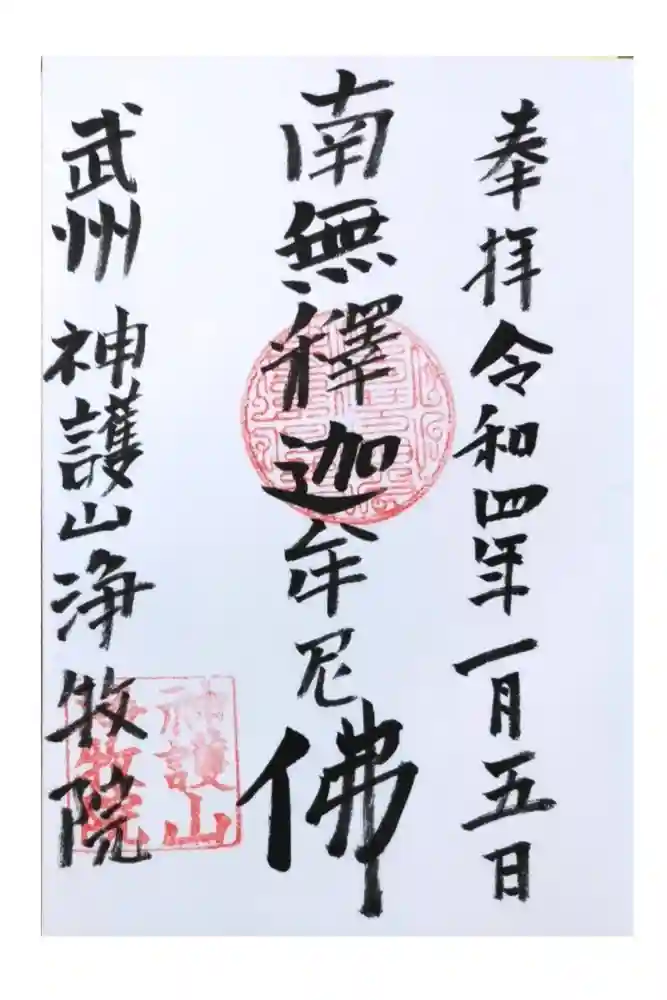 奉拝令和四年一月五日
南無釋迦牟尼佛
武州神護山浄牧院
神護山
浄牧院